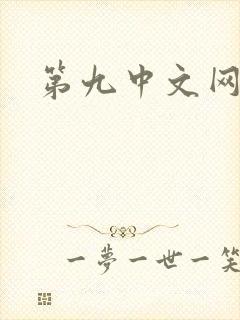 第九中文网
一夢一世一笑